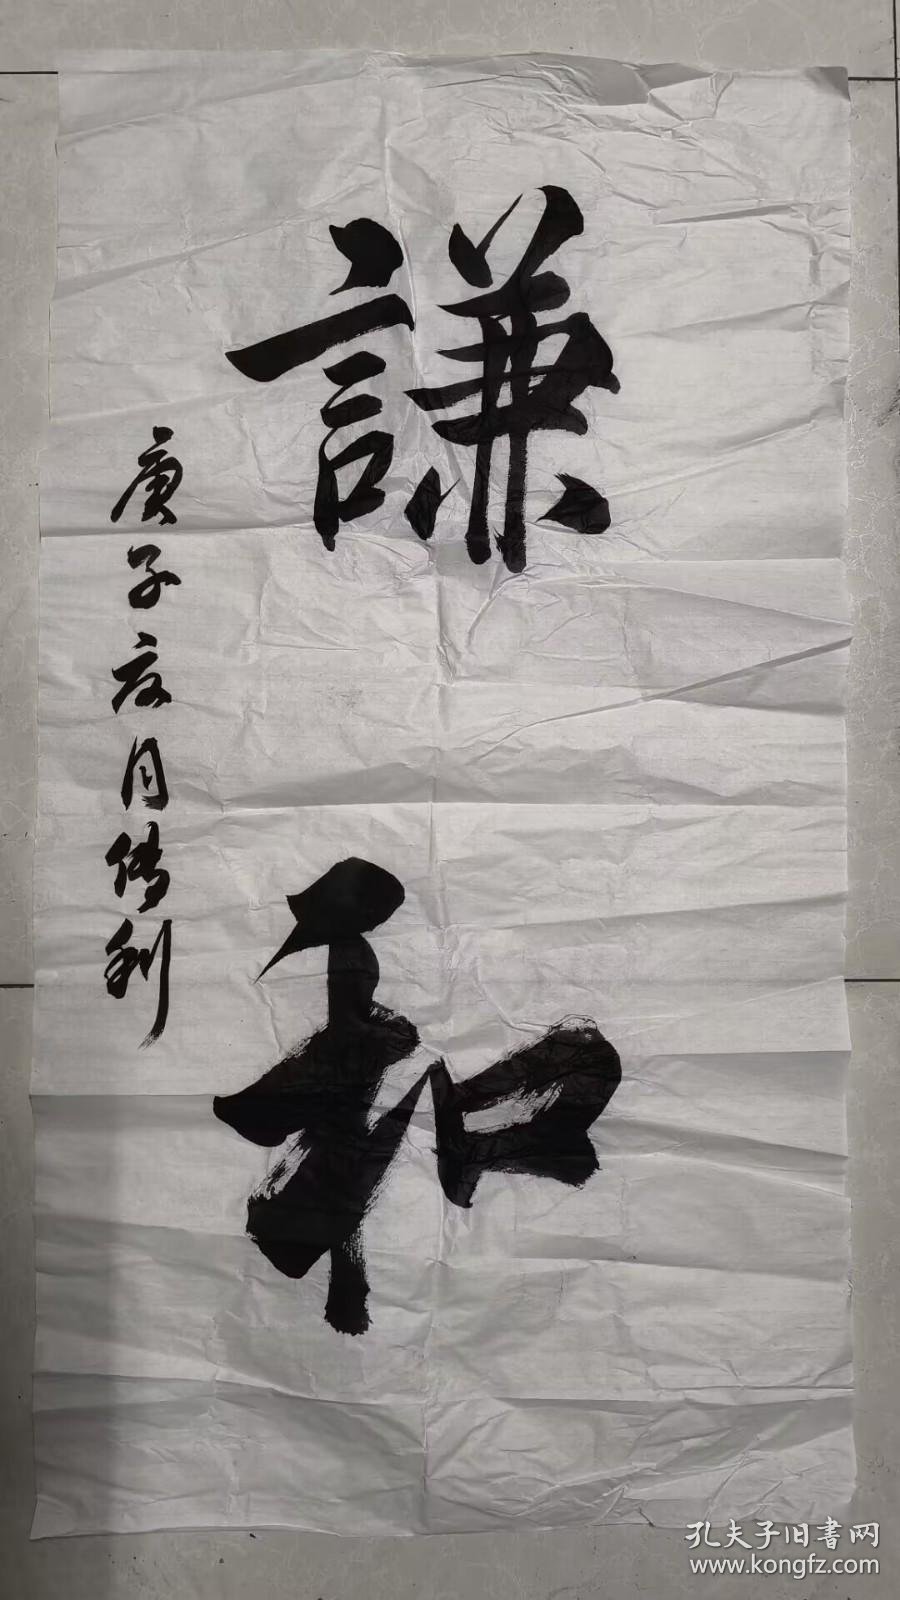 謙和
庚子夏月传利
孔夫子旧書网
www.kongfz.com